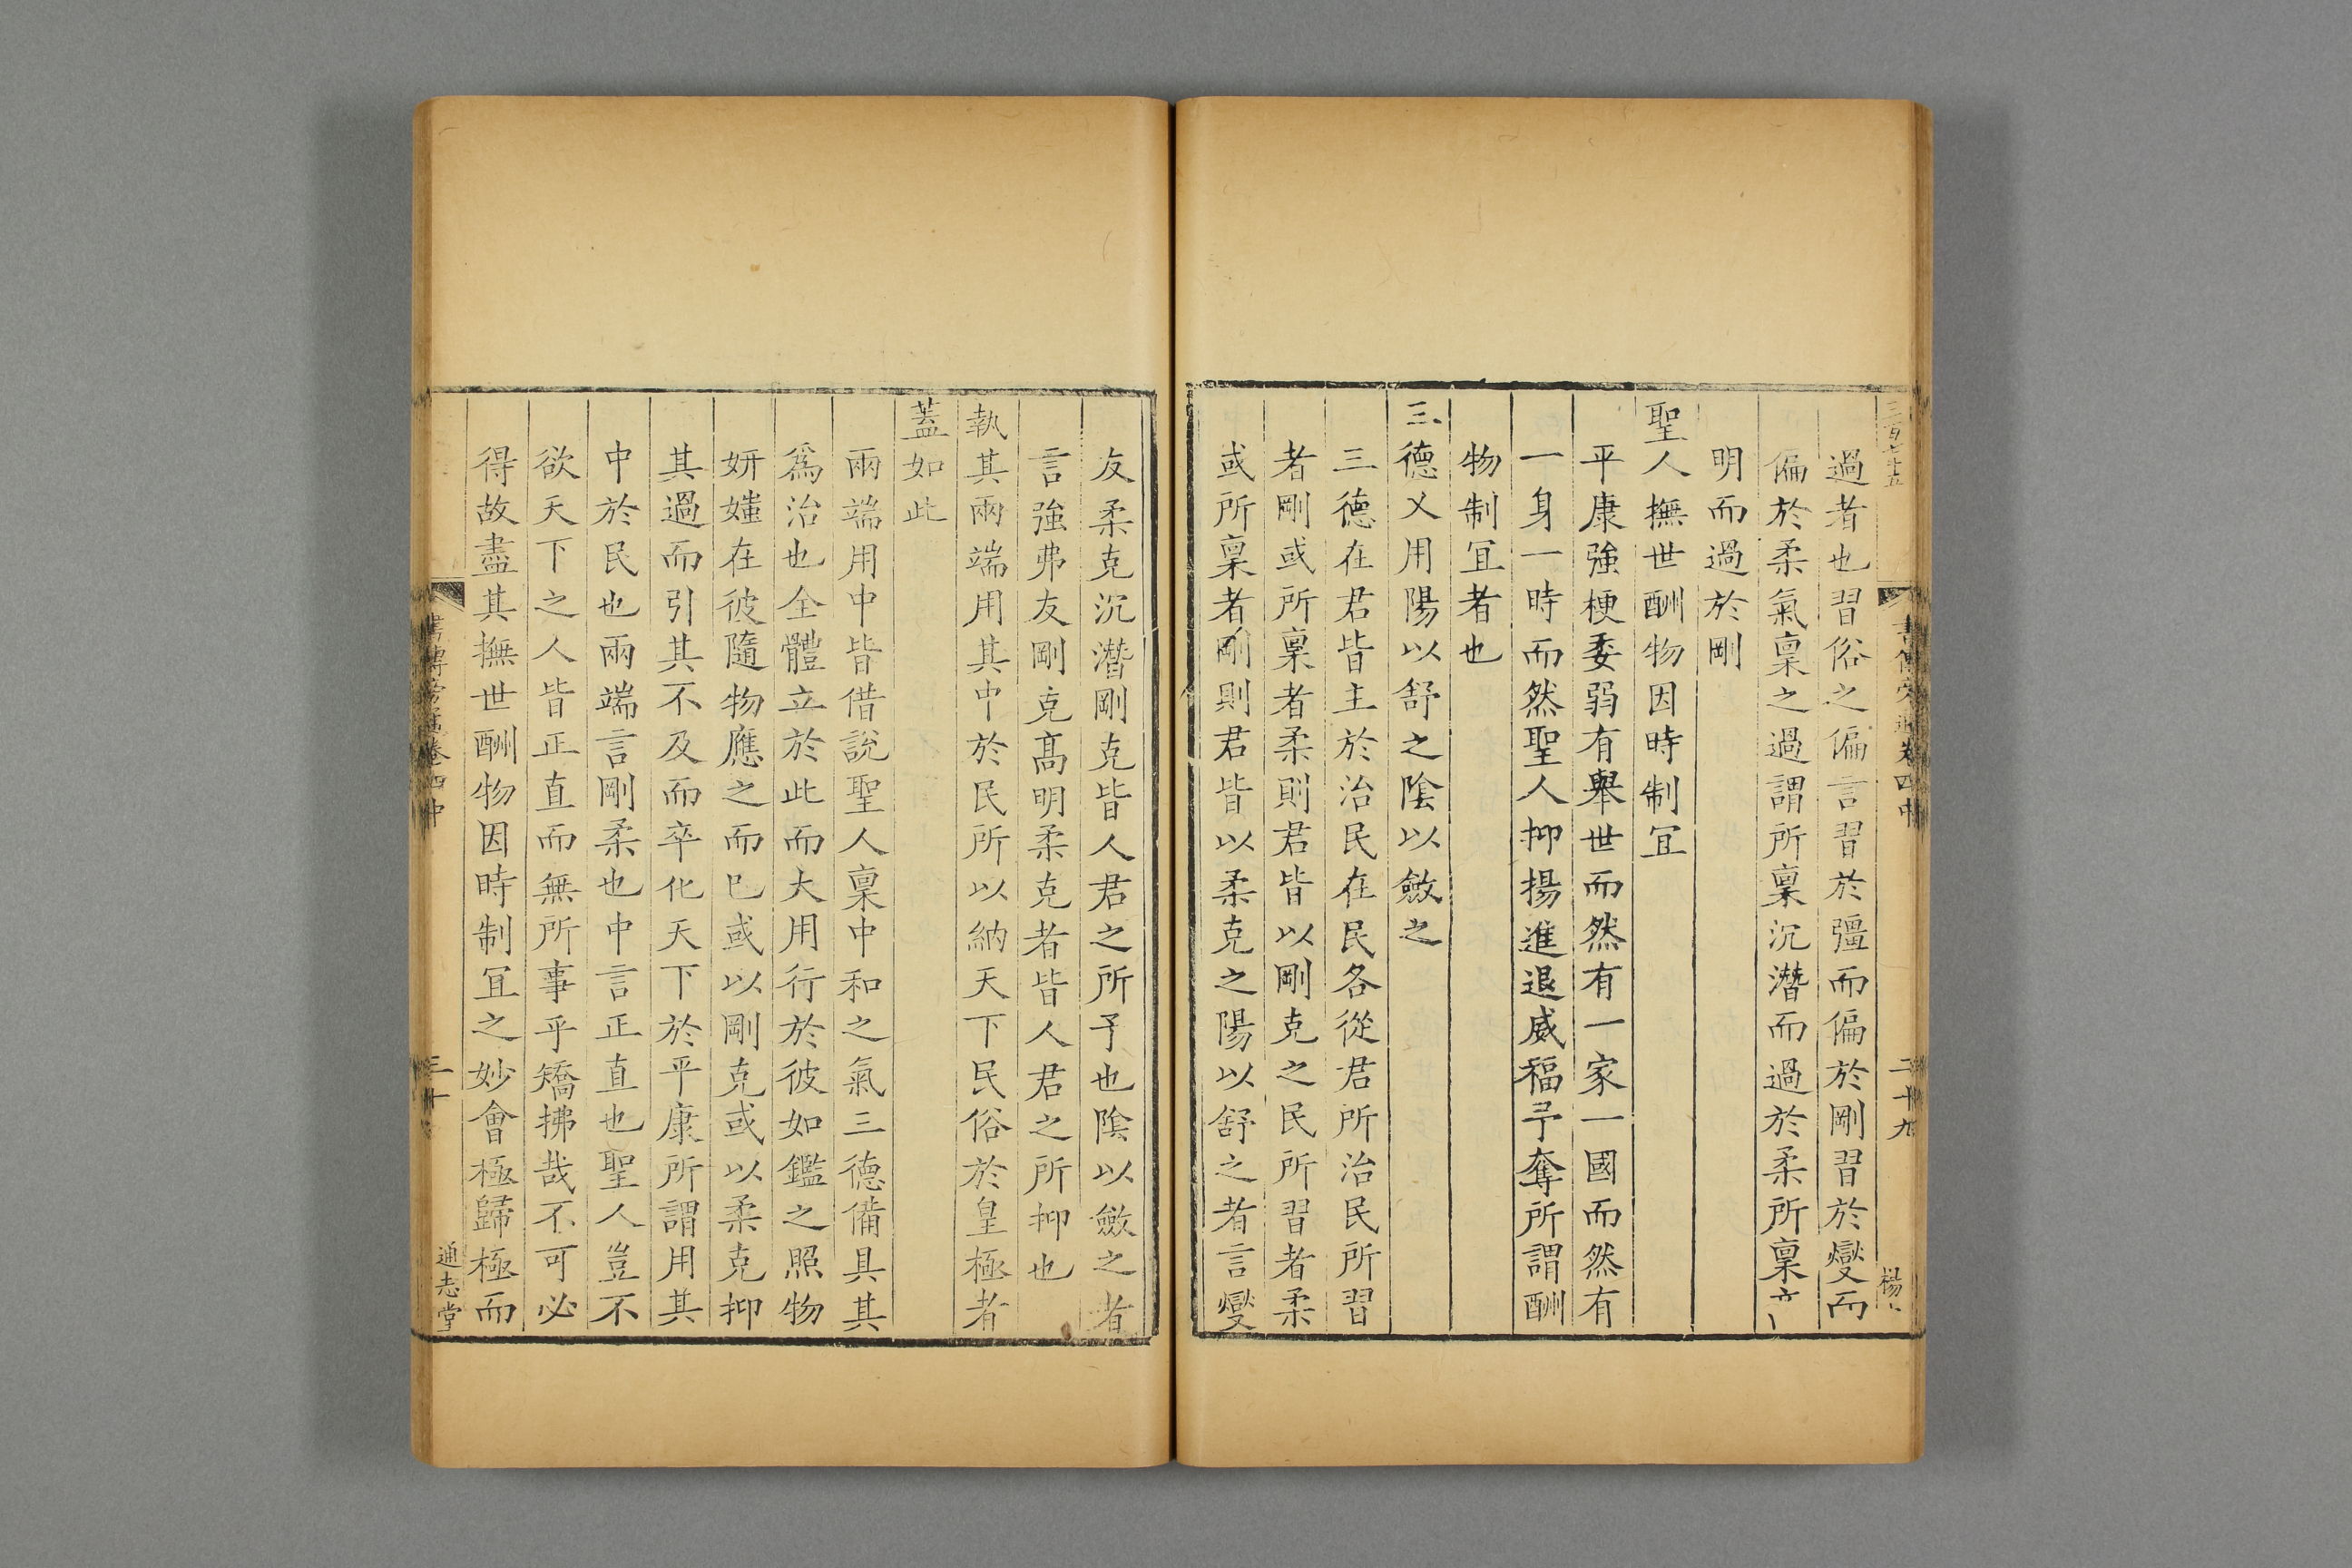 過者也習俗之偏言習於彊而偏於剛習於燮而
偏於柔氣稟之過謂所稟沉潛而過於柔所稟
明而過於剛
聖人撫世酬物因時制宜
平康強梗委弱有舉世而然有一家一國而然有
一身一時而然聖人抑揚進退威福予奪所謂酬
物制宜者也
三德乂用陽以舒之陰以斂之
三德在君皆主於治民在民各從君所治民所習
者剛或所稟者柔則君皆以剛克之民所習者柔
或所稟者剛則君皆以柔克之陽以舒之者言燮
二十九
友柔克沉潛剛克皆人君之所予也陰以斂之者
言強弗友剛克高明柔克者皆人君之所抑也
執其兩端用其中於民所以納天下民俗於皇極者
蓋如此
兩端用中皆借說聖人稟中和之氣三德備具其
爲治也全體立於此而大用行於彼如鑑之照物
妍媸在彼隨物應之而已或以剛克或以柔克抑
其過而引其不及而卒化天下於平康所謂用其
中於民也兩端言剛柔也中言正直也聖人豈不
欲天下之人皆正直而無所事乎矯拂哉不可必
得故盡其撫世酬物因時制宜之妙會極歸極而
卷四中
三十
通志堂